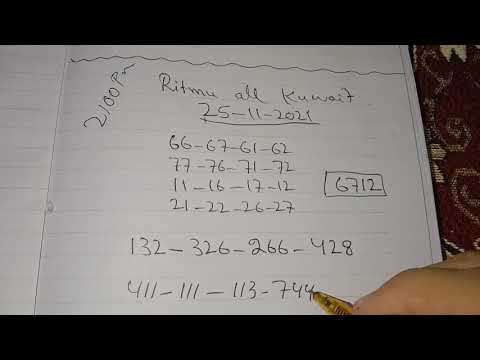 2100Pm
Ritmu all Kuwait
25-11-2021
66-67-61-62
77-76-71-72
11-16-17-12
6712
21-22-26-27
132-326-266-428
411-111-113-744